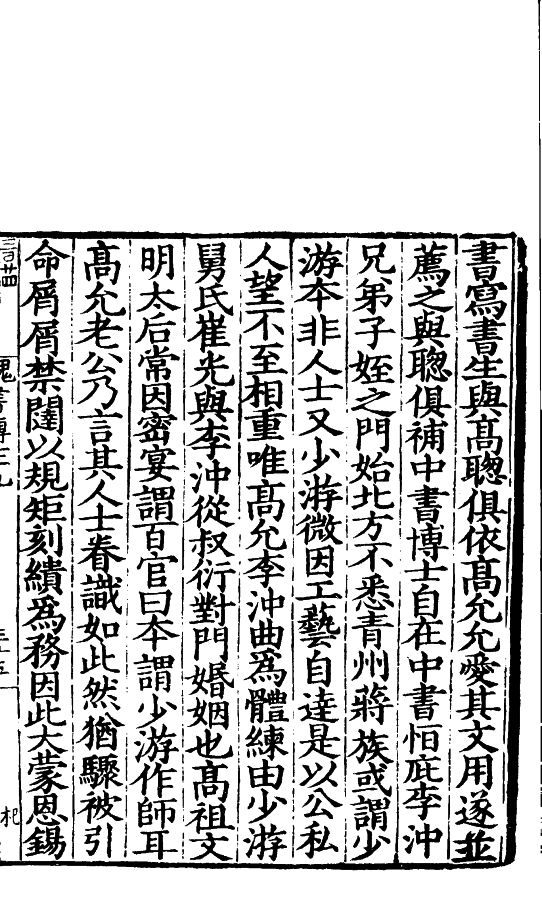 書寫書生與高聰俱依高允允愛其文用遂並
薦之與聰俱補中書博士自在中書恒庇李沖
兄弟子姪之門始北方不悉青州蔣族或謂少
游本非人士又少游微因工藝自達是以公私
人望不至相重唯高允李沖曲為體練由少游
舅氏崔光與李沖從叔衍對門婚姻也高祖文
明太后常因密宴謂百官曰本謂少游作師耳
高允老公乃言其人士眷識如此然猶驟被引
命屑屑禁闥以規矩刻繢為務因此大蒙恩錫